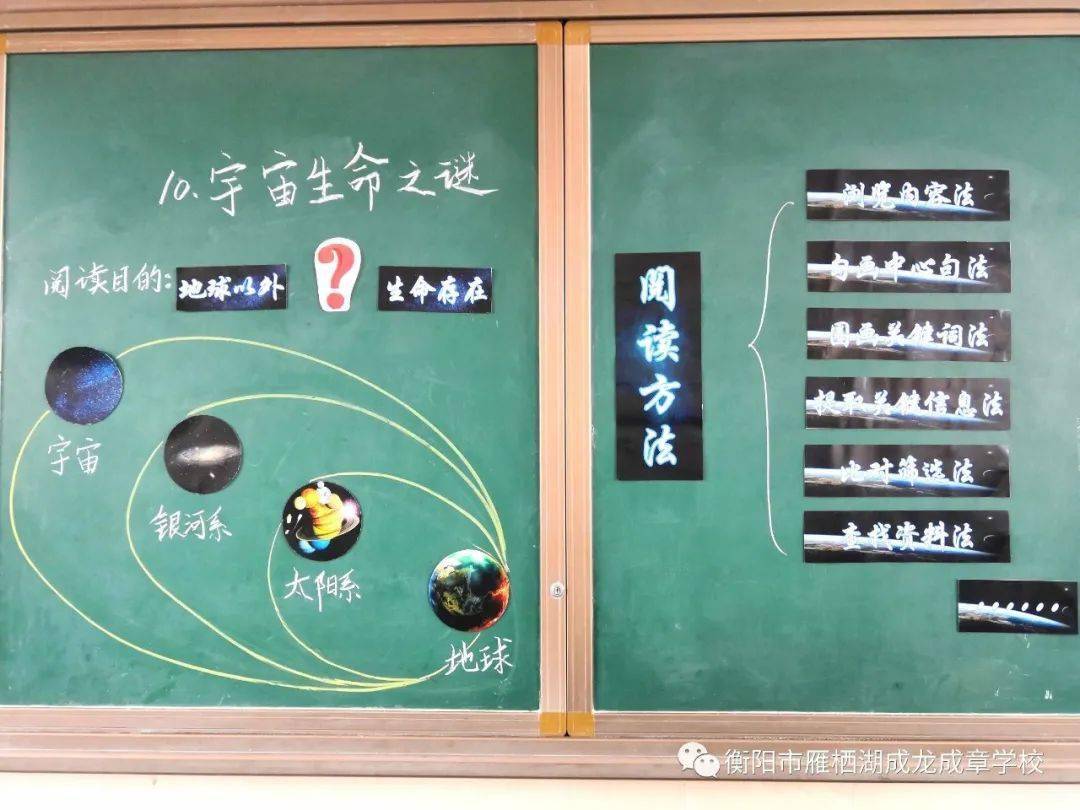 10.宇宙生命之谜
阅读目的:
地球以外
?
生命存在
宇宙
银河系
太阳系
地球
阅读方法
浏览内容法
勾画中心句法
圈画关键词法
提取关键信息法
比对筛选法
查找资料法
......
衡阳市雁栖湖成龙成章学校